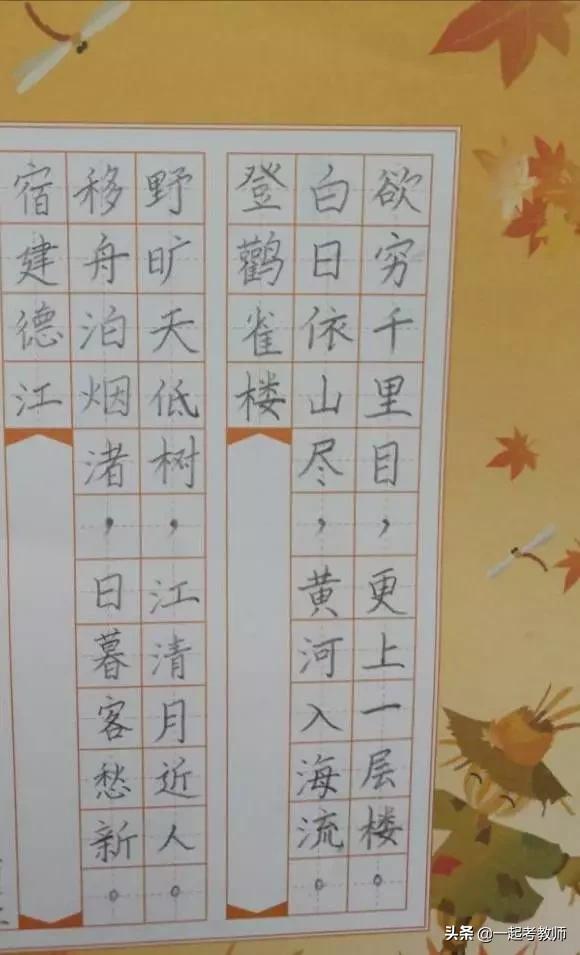 宿建德江
移舟泊烟渚，日暮客愁新。
野旷天低树，江清月近人。
登鹳雀楼
白日依山尽，黄河入海流。
欲穷千里目，更上一层楼。
头条 @一起考教师